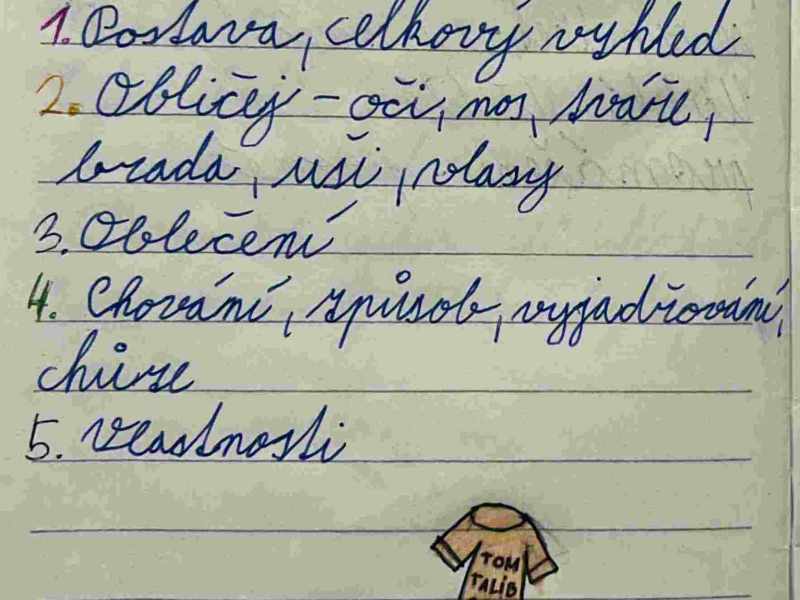 1. Postava, celkový vzhled
2. Obličej - oči, nos, tváře,
brada, uši, vlasy
3. Oblečení
4. Chování, způsob, vyjadřování,
chůze
5. Vlastnosti
TOM
TALIB